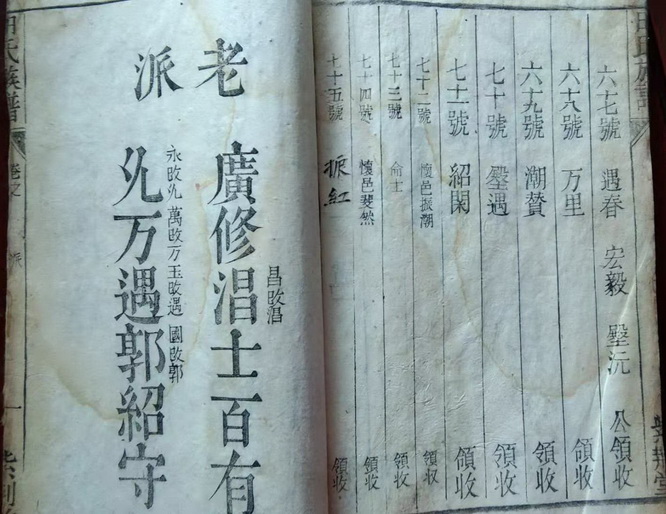 六十七號 遇春 宏毅 壂沅 公領收
六十八號 万里 領收
六十九號 潮贊 領收
七十號 壂遇 領收
七十一號 紹閑 領收
七十二號 懷邑振潮 領收
七十三號 命士 領收
七十四號 懷邑斐然 領收
七十五號 振紅 領收
老派
廣修淐士百有
昌改淐
永改㕥 萬改万 玉改遇 國改郭
㕥万遇郭紹守
氏族譜
卷之
派
一
紫荆